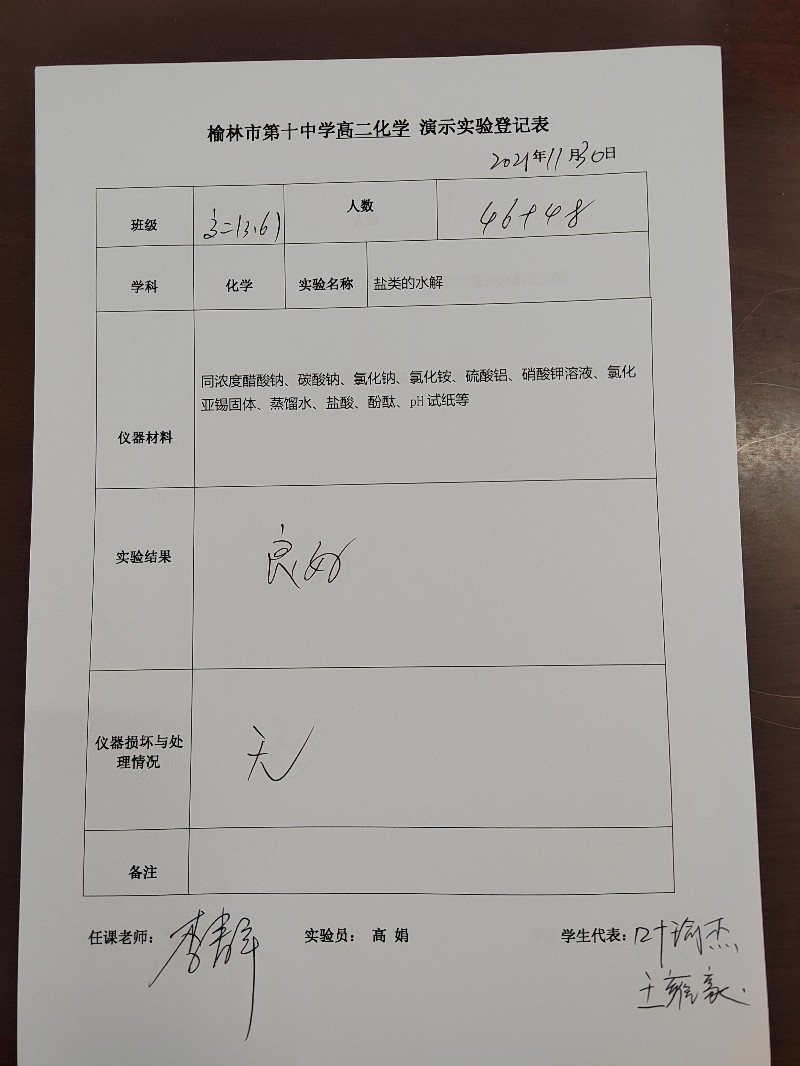 榆林市第十中学高二化学 演示实验登记表
2021年11月30日
班级 高二(3.6) 人数 46+48
学科 化学 实验名称 盐类的水解
仪器材料
同浓度醋酸钠、碳酸钠、氯化钠、氯化铵、硫酸铝、硝酸钾溶液、氯化
亚锡固体、蒸馏水、盐酸、酚酞、pH 试纸等
实验结果 良好
仪器损坏与处
理情况
无
备注
任课老师： 实验员： 高 娟 学生代表：叶瑜杰
王雍豪